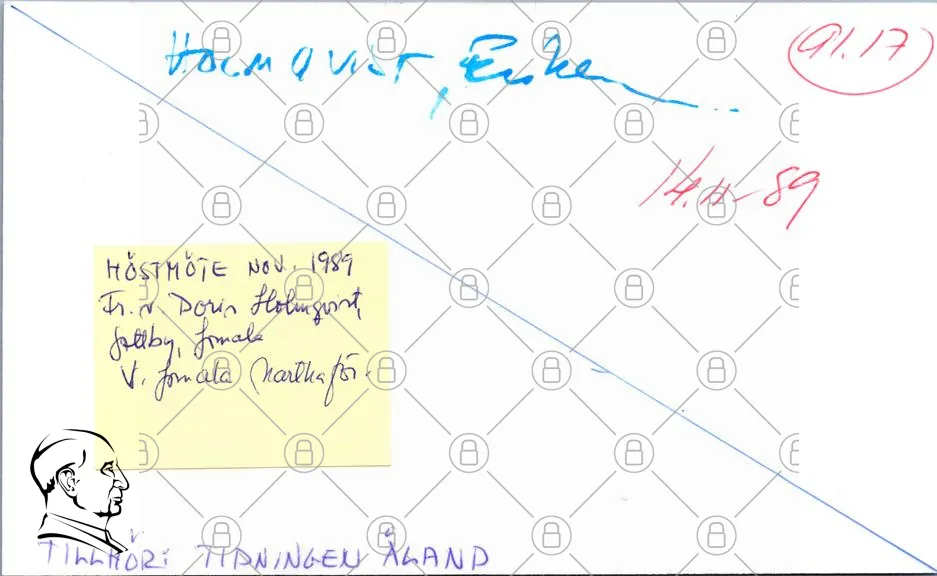 HOLMQVIST,
91.17
14.11-89
HÖSTMÖTE NOV. 1989
Fr. v. Doris Holmqvist,
Gottby, Jomala
V. Jomala Marthaför.
TILLHÖR: TIDNINGEN ÅLAND